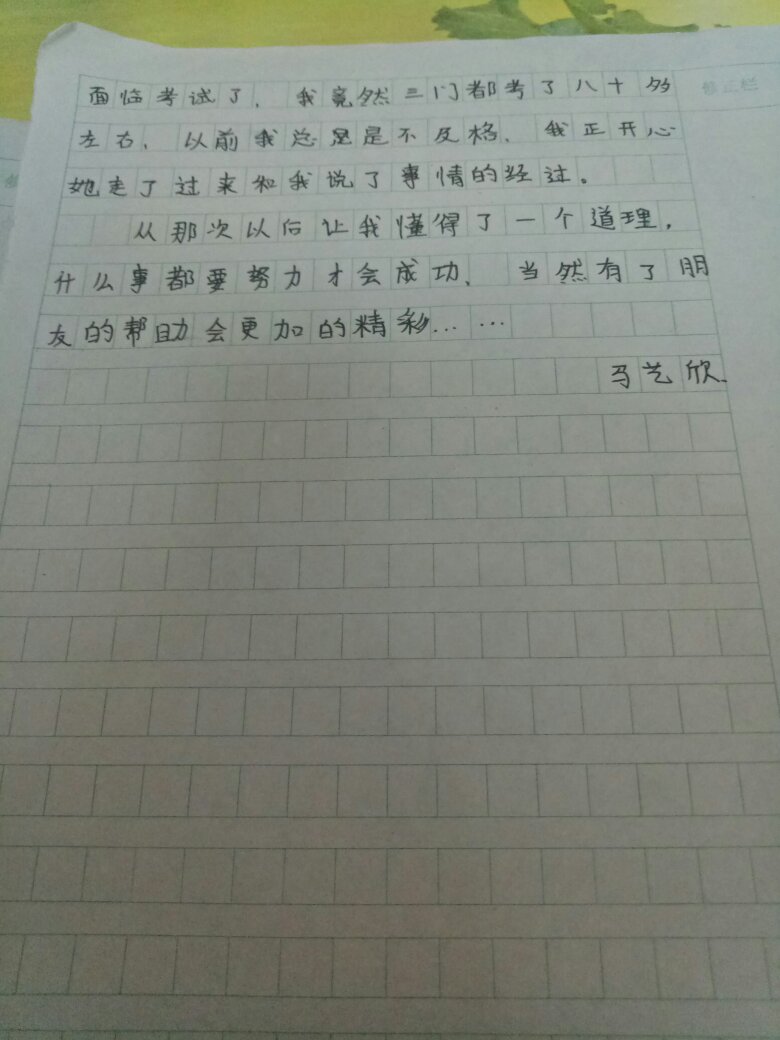 修正栏
面临考试了、我竟然三门都考了八十多
左右、以前我总是是不及格、我正开心
她走了过来和我说了事情的经过。
从那次以后让我懂得了一个道理，
什么事都要努力才会成功、当然有了朋
友的帮助会更加的精彩……
马艺欣